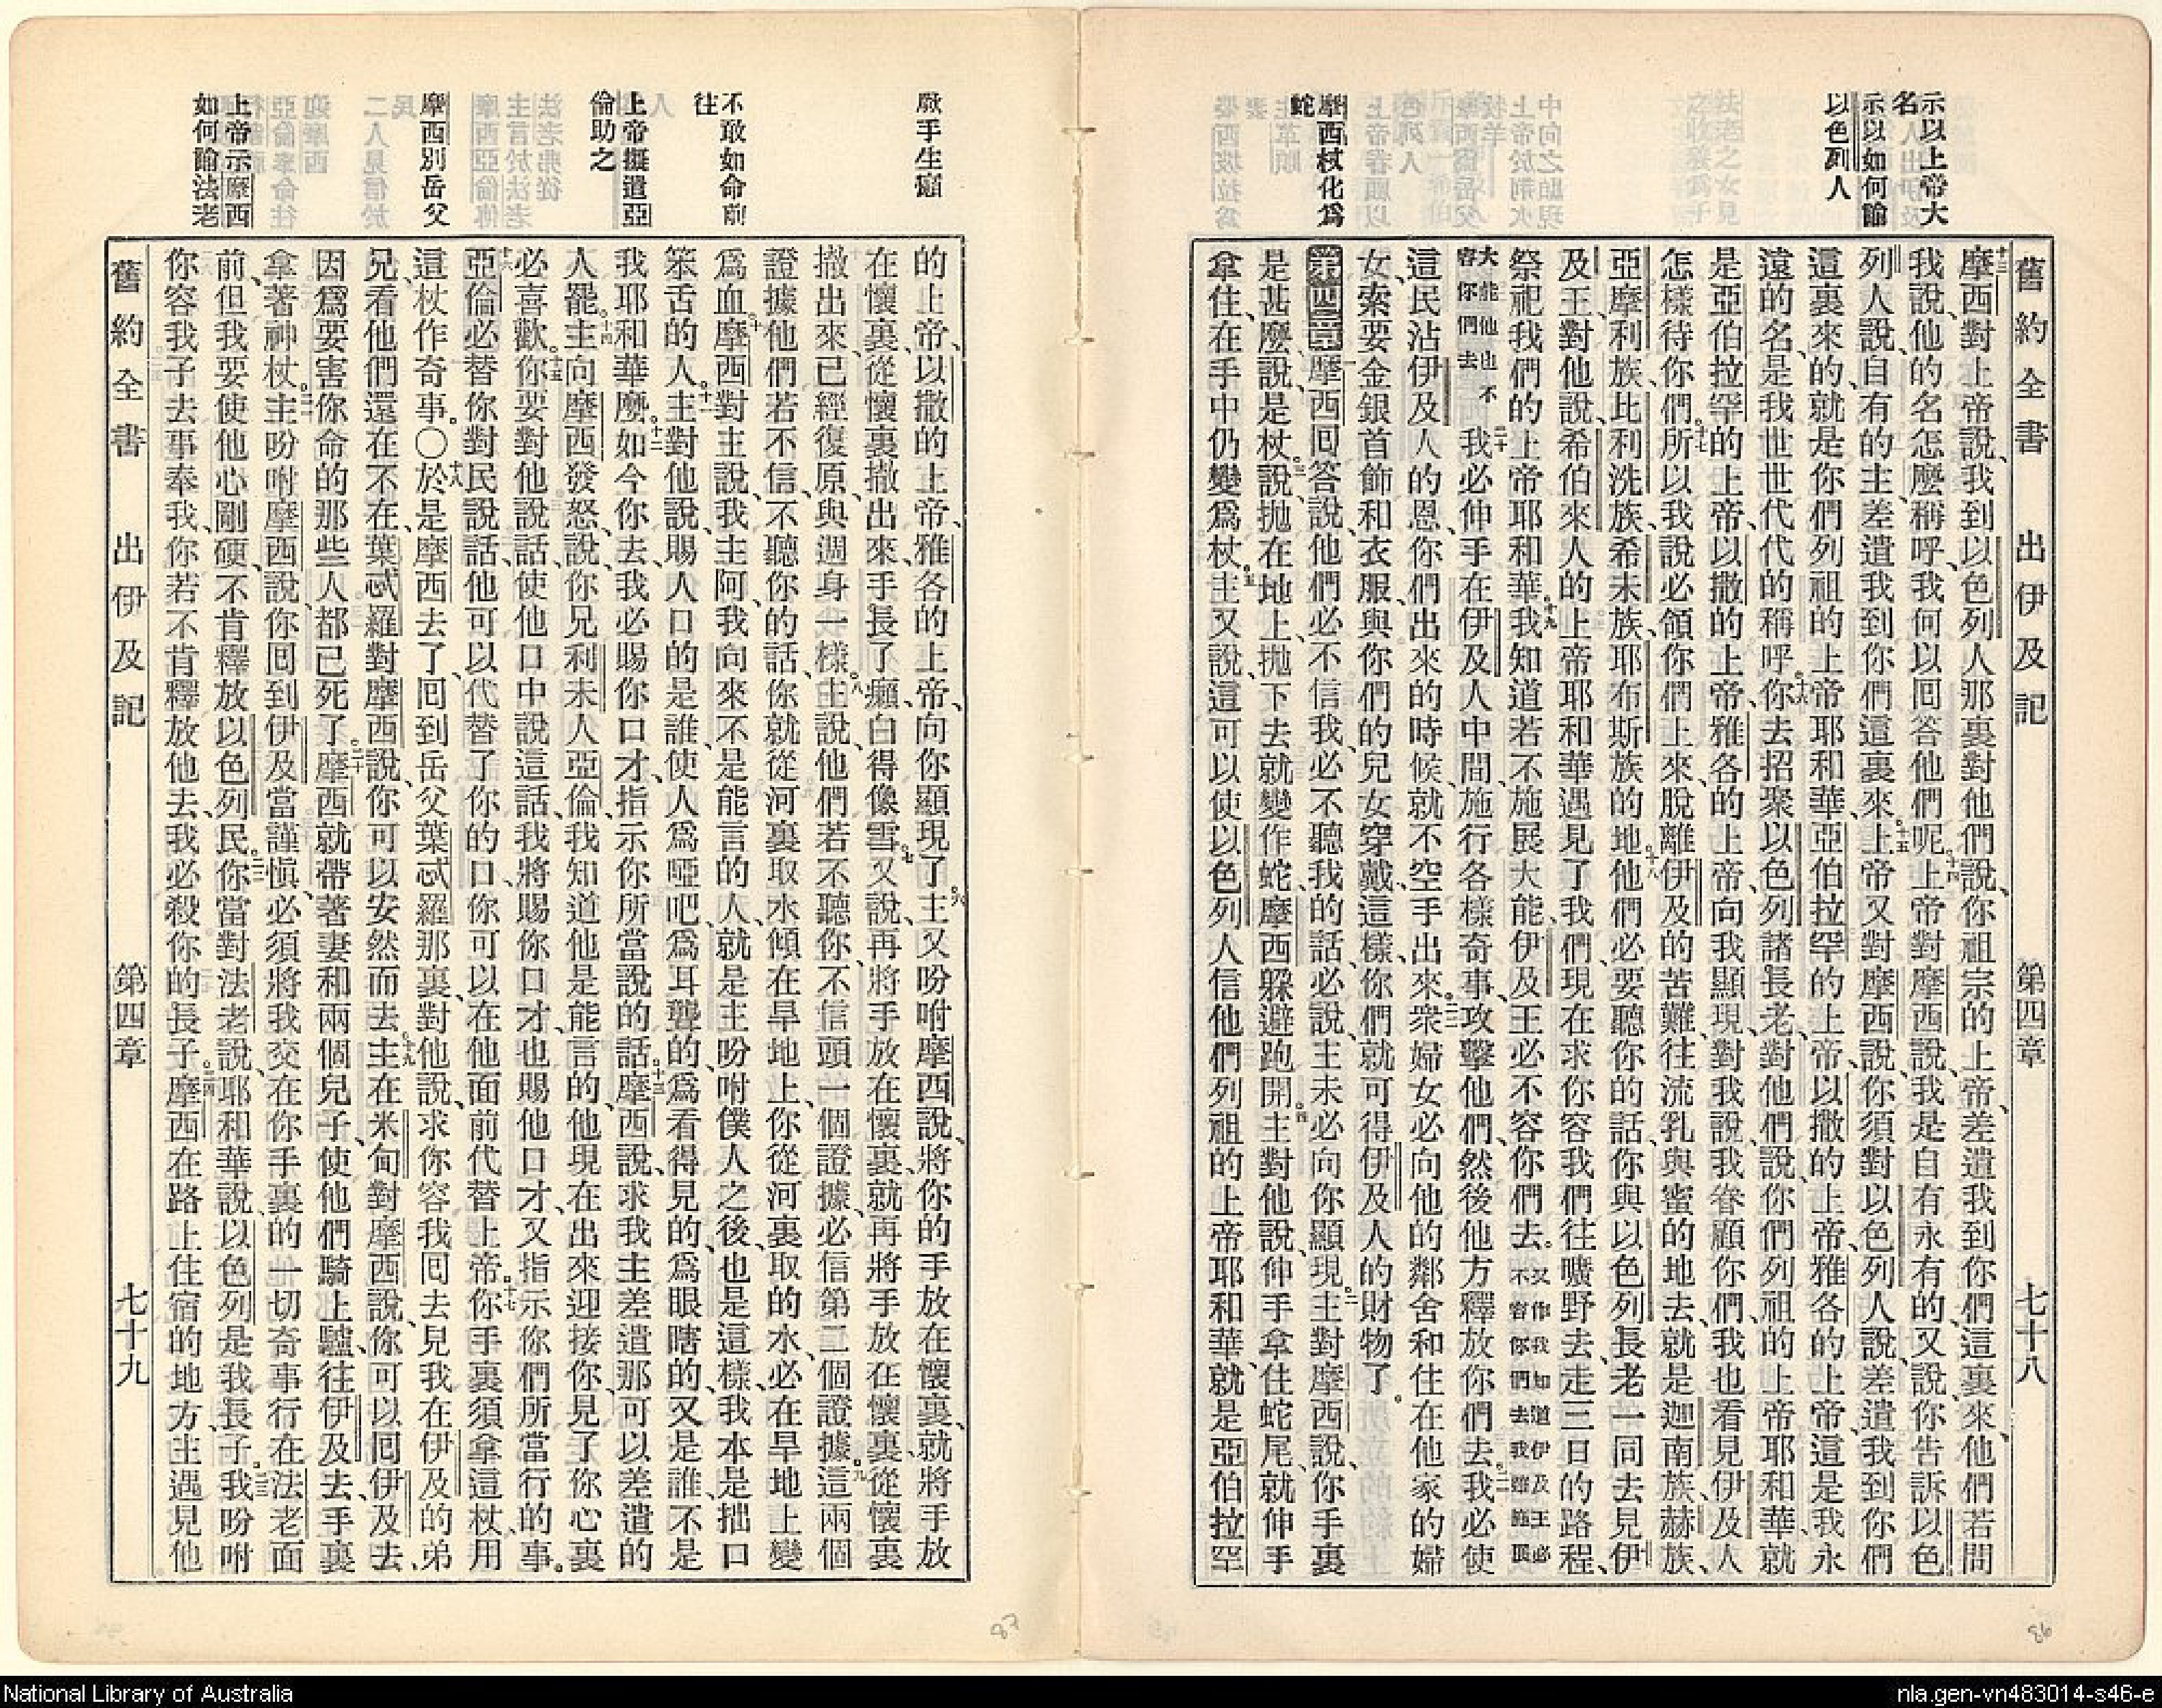 舊約全書 出伊及記 第四章 七十八
示以上帝大
名
示以如何諭
以色列人
摩西杖化爲
蛇
十三摩西對上帝說、我到以色列人那裏對他們說、你祖宗的上帝、差遣我到你們這裏來、他們若問
我說、他的名怎麼稱呼、我何以回答他們呢。十四上帝對摩西說、我是自有永有的、又說、你告訴以色
列人說、自有的主差遣我到你們這裏來。十五上帝又對摩西說、你須對以色列人說、差遣我到你們
這裏來的、就是你們列祖的上帝耶和華、亞伯拉罕的上帝、以撒的上帝、雅各的上帝、這是我永
遠的名、是我世世代代的稱呼。十六你去招聚以色列諸長老、對他們說、你們列祖的上帝耶和華、就
是亞伯拉罕的上帝、以撒的上帝、雅各的上帝、向我顯現、對我說、我眷顧你們、我也看見伊及人
怎樣待你們。十七所以我說、必領你們上來、脫離伊及的苦難、往流乳與蜜的地去、就是迦南族、赫族、
亞摩利族、比利洗族、希未族、耶布斯族的地。十八他們必要聽你的話、你與以色列長老一同去見伊
及王、對他說、希伯來人的上帝耶和華遇見了我們、現在求你容我們往曠野去、走三日的路程、
祭祀我們的上帝耶和華。十九我知道若不施展大能、伊及王必不容你們去。又作我知道伊及王必不容你們去我雖施展
大能他也不容你們去 二十我必伸手在伊及人中間、施行各樣奇事、攻擊他們、然後他方釋放你們去。二一我必使
這民沾伊及人的恩、你們出來的時候、就不空手出來。二二衆婦女必向他的鄰舍和住在他家的婦
女、索要金銀首飾和衣服、與你們的兒女穿戴、這樣、你們就可得伊及人的財物了。
第四章 一摩西回答說、他們必不信我、必不聽我的話、必說、主未必向你顯現。二主對摩西說、你手裏
是甚麼、說、是杖。三說、拋在地上、拋下去就變作蛇、摩西躲避跑開。四主對他說、伸手拿住蛇尾、就伸手
拿住、在手中仍變爲杖。五主又說、這可以使以色列人信他們列祖的上帝耶和華、就是亞伯拉罕
厥手生癩
不敢如命前
往
上帝擬遣亞
倫助之
摩西別岳父
上帝示摩西
如何諭法老
的上帝、以撒的上帝、雅各的上帝、向你顯現了。六主又吩咐摩西說、將你的手放在懷裏、就將手放
在懷裏、從懷裏撤出來、手長了癩、白得像雪。七又說、再將手放在懷裏、就再將手放在懷裏、從懷裏
撤出來、已經復原、與週身一樣。八主說、他們若不聽你、不信頭一個證據、必信第二個證據。九這兩個
證據、他們若不信、不聽你的話、你就從河裏取水、傾在旱地上、你從河裏取的水、必在旱地上變
爲血。十摩西對主說、我主阿、我向來不是能言的人、就是主吩咐僕人之後、也是這樣、我本是拙口
笨舌的人。十一主對他說、賜人口的是誰、使人爲啞吧、爲耳聾的、爲看得見的、爲眼瞎的、又是誰、不是
我耶和華麼。十二如今你去、我必賜你口才、指示你所當說的話。十三摩西說、求我主差遣那可以差遣的
人罷。十四主向摩西發怒、說、你兄利未人亞倫、我知道他是能言的、他現在出來迎接你、見了你心裏
必喜歡。十五你要對他說話、使他口中說這話、我將賜你口才、也賜他口才、又指示你們所當行的事。
十六亞倫必替你對民說話、他可以代替了你的口、你可以在他面前代替上帝。十七你手裏須拿這杖、用
這杖作奇事。○十八於是摩西去了、回到岳父葉忒羅那裏、對他說、求你容我回去見我在伊及的弟
兄、看他們還在不在、葉忒羅對摩西說、你可以安然而去。十九主在米甸對摩西說、你可以回伊及去、
因爲要害你命的那些人都已死了。二十摩西就帶著妻和兩個兒子、使他們騎上驢、往伊及去、手裏
拿著神杖。二一主吩咐摩西說、你回到伊及、當謹愼、必須將我交在你手裏的一切奇事、行在法老面
前、但我要使他心剛硬、不肯釋放以色列民。二二你當對法老說、耶和華說、以色列是我長子。二三我吩咐
你容我子去事奉我、你若不肯釋放他去、我必殺你的長子。二四摩西在路上住宿的地方、主遇見他
舊約全書 出伊及記 第四章 七十九
87
86
National Library of Australia
nla.gen-vn483014-s46-e